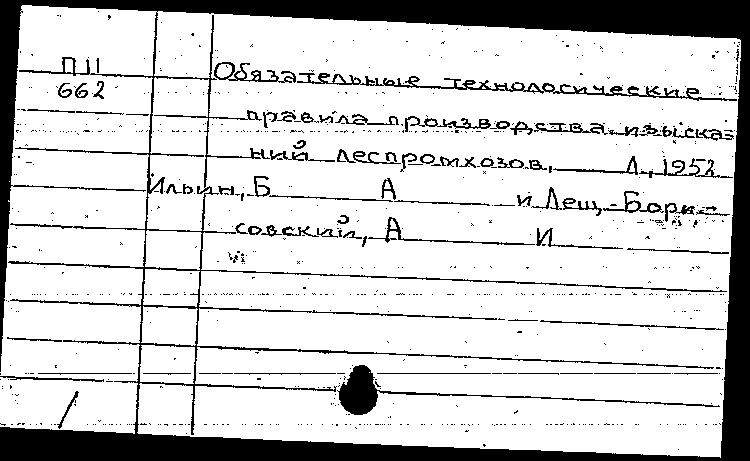 П11
662
Обязательные технологические
правила производства изыска=
ний леспромхозов, Л., 1952
Ильин, Б А и Лещ.-Бори-
совский, А И
VI